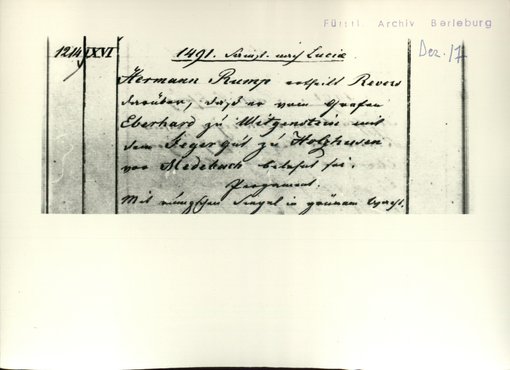 Fürstl. Archiv Berleburg
Dez. 17
1214 XXVI
1491. Dienst. nach Luciä
Hermann Rump ertheilt Revers
darüber, daß er vom Grafen
Eberhard zu Witgenstein mit
dem Segergut zu Holzhusen
vor Medebach belehnt sei.
Pergament.
Mit rundem Siegel in grünem Wachs.